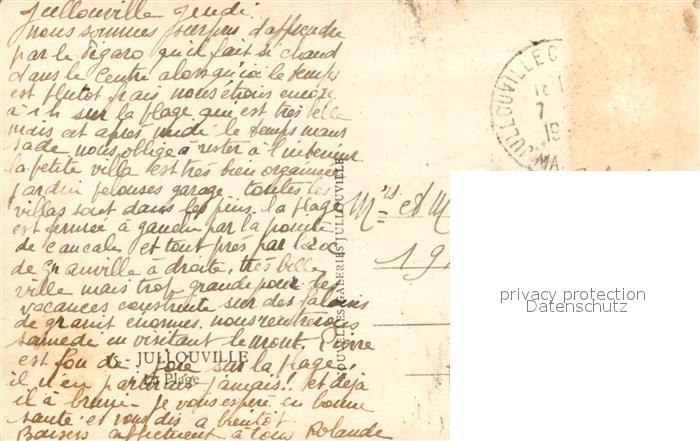 Jullouville Jeudi.
nous sommes surpris d'apprendre
par le Figaro qu'il fait si chaud
dans le Centre alors qu'ici le temps
est plutot frais nous étions encore
à 1 h sur la plage qui est très belle
mais cet après midi le temps maus
sade nous oblige à rester à l'interieur
la petite villa est très bien organisée
jardin pelouses garage toutes les
villas sont dans les pins. la plage
est fermée à gauche par la pointe
de cancale et tout près par le roc
de Granville à droite, très belle
ville mais trop grande pour des
vacances construite sur des falaises
de granit enormes. nous rentrerons
samedi en visitant le Mont. Pierre
est fou de joie sur la plage,
il n'en partirait jamais! et déjà
il a bruni je vous espère en bonne
santé et vous dis a bientôt
Baisers affectueux à tous Rolande
15 - JULLOUVILLE
La Plage
NOUVELLES GALERIES JULLOUVILLE
JULLOUVILLE
7
19
MA
M
et M
19
privacy protection
Datenschutz